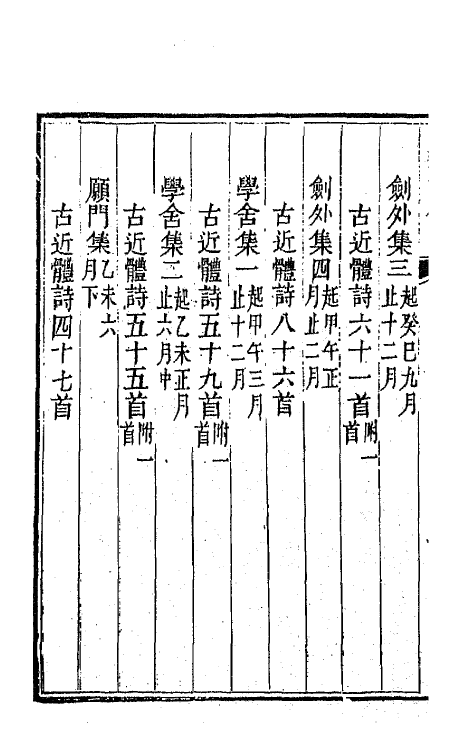 劍外集三起癸巳九月止十二月
古近體詩六十一首附一首
劍外集四起甲午正月止二月
古近體詩八十六首
學舍集一起甲午三月止十二月
古近體詩五十九首附一首
學舍集二起乙未正月止六月中
古近體詩五十五首附一首
願門集乙未六月下
古近體詩四十七首